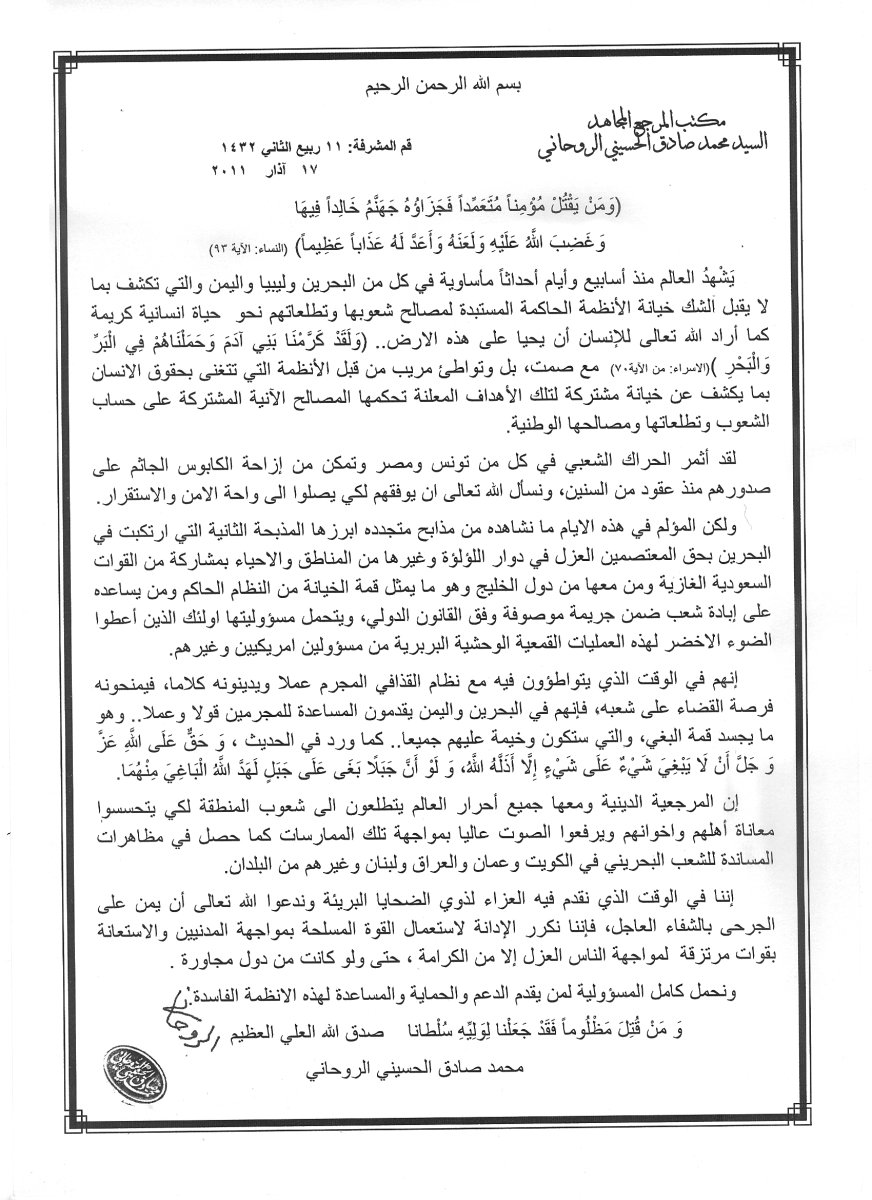 بسم الله الرحمن الرحيم
مكتب المرجع المجاهد
السيد محمد صادق الحسيني الروحاني
قم المشرفة: ١١ ربيع الثاني ١٤٣٢
١٧ آذار ٢٠١١
(وَمَنْ يَقْتُلْ مُؤْمِناً مُتَعَمِّداً فَجَزَاؤُهُ جَهَنَّمُ خَالِداً فِيهَا
وَغَضِبَ اللَّهُ عَلَيْهِ وَلَعَنَهُ وَأَعَدَّ لَهُ عَذَاباً عَظِيماً) (النساء: الآية ٩٣)
يَشْهدُ العالم منذ أسابيع وأيام أحداثاً مأساوية في كل من البحرين وليبيا واليمن والتي تكشف بما
لا يقبل الشك خيانة الأنظمة الحاكمة المستبدة لمصالح شعوبها وتطلعاتهم نحو حياة انسانية كريمة
كما أراد الله تعالى للإنسان أن يحيا على هذه الارض.. (وَلَقَدْ كَرَّمْنَا بَنِي آدَمَ وَحَمَلْنَاهُمْ فِي الْبَرِّ
وَالْبَحْرِ )(الاسراء: من الآية٧٠) مع صمت، بل وتواطئ مريب من قبل الأنظمة التي تتغنى بحقوق الانسان
بما يكشف عن خيانة مشتركة لتلك الأهداف المعلنة تحكمها المصالح الآنية المشتركة على حساب
الشعوب وتطلعاتها ومصالحها الوطنية.
لقد أثمر الحراك الشعبي في كل من تونس ومصر وتمكن من إزاحة الكابوس الجاثم على
صدورهم منذ عقود من السنين، ونسأل الله تعالى ان يوفقهم لكي يصلوا الى واحة الامن والاستقرار.
ولكن المؤلم في هذه الايام ما نشاهده من مذابح متجدده ابرزها المذبحة الثانية التي ارتكبت في
البحرين بحق المعتصمين العزل في دوار اللؤلؤة وغيرها من المناطق والاحياء بمشاركة من القوات
السعودية الغازية ومن معها من دول الخليج وهو ما يمثل قمة الخيانة من النظام الحاكم ومن يساعده
على إبادة شعب ضمن جريمة موصوفة وفق القانون الدولي، ويتحمل مسؤوليتها اولئك الذين أعطوا
الضوء الاخضر لهذه العمليات القمعية الوحشية البربرية من مسؤولين امريكيين وغيرهم.
إنهم في الوقت الذي يتواطؤون فيه مع نظام القذافي المجرم عملا ويدينونه كلاما، فيمنحونه
فرصة القضاء على شعبه، فإنهم في البحرين واليمن يقدمون المساعدة للمجرمين قولا وعملا.. وهو
ما يجسد قمة البغي، والتي ستكون وخيمة عليهم جميعا.. كما ورد في الحديث ، وَ حَقٌّ عَلَى اللَّهِ عَزَّ
وَ جَلَّ أَنْ لَا يَبْغِيَ شَيْءٌ عَلَى شَيْءٍ إِلَّا أَذَلَّهُ اللَّهُ، وَ لَوْ أَنَّ جَبَلًا بَغَى عَلَى جَبَلٍ لَهَدَّ اللَّهُ الْبَاغِيَ مِنْهُمَا.
إن المرجعية الدينية ومعها جميع أحرار العالم يتطلعون الى شعوب المنطقة لكي يتحسسوا
معاناة أهلهم واخوانهم ويرفعوا الصوت عاليا بمواجهة تلك الممارسات كما حصل في مظاهرات
المساندة للشعب البحريني في الكويت وعمان والعراق ولبنان وغيرهم من البلدان.
إننا في الوقت الذي نقدم فيه العزاء لذوي الضحايا البريئة وندعوا الله تعالى أن يمن على
الجرحى بالشفاء العاجل، فإننا نكرر الإدانة لاستعمال القوة المسلحة بمواجهة المدنيين والاستعانة
بقوات مرتزقة لمواجهة الناس العزل إلا من الكرامة ، حتى ولو كانت من دول مجاورة .
ونحمل كامل المسؤولية لمن يقدم الدعم والحماية والمساعدة لهذه الانظمة الفاسدة.
وَ مَنْ قُتِلَ مَظْلُوماً فَقَدْ جَعَلْنا لِوَلِيِّهِ سُلْطانا صدق الله العلي العظيم
محمد صادق الحسيني الروحاني